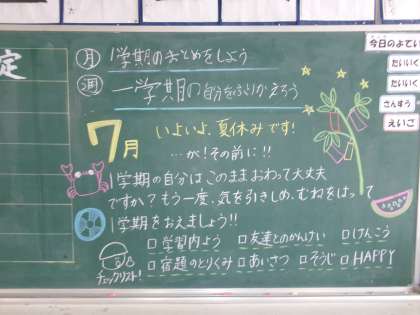 定
今日のよてい
たいいく
たいいく
さんすう
えいご
月 1学期のまとめをしよう
週 一学期の自分をふりかえろう
7月
いよいよ、夏休みです!
…が!その前に!!
1学期の自分はこのままおわって大丈夫
ですか?もう一度、気を引きしめ、むねをはって
1学期をおえましょう!!
チェックリスト!
□学習内よう □友達とのかんけい □けんこう
□宿題のとりくみ □あいさつ □そうじ □HAPPY